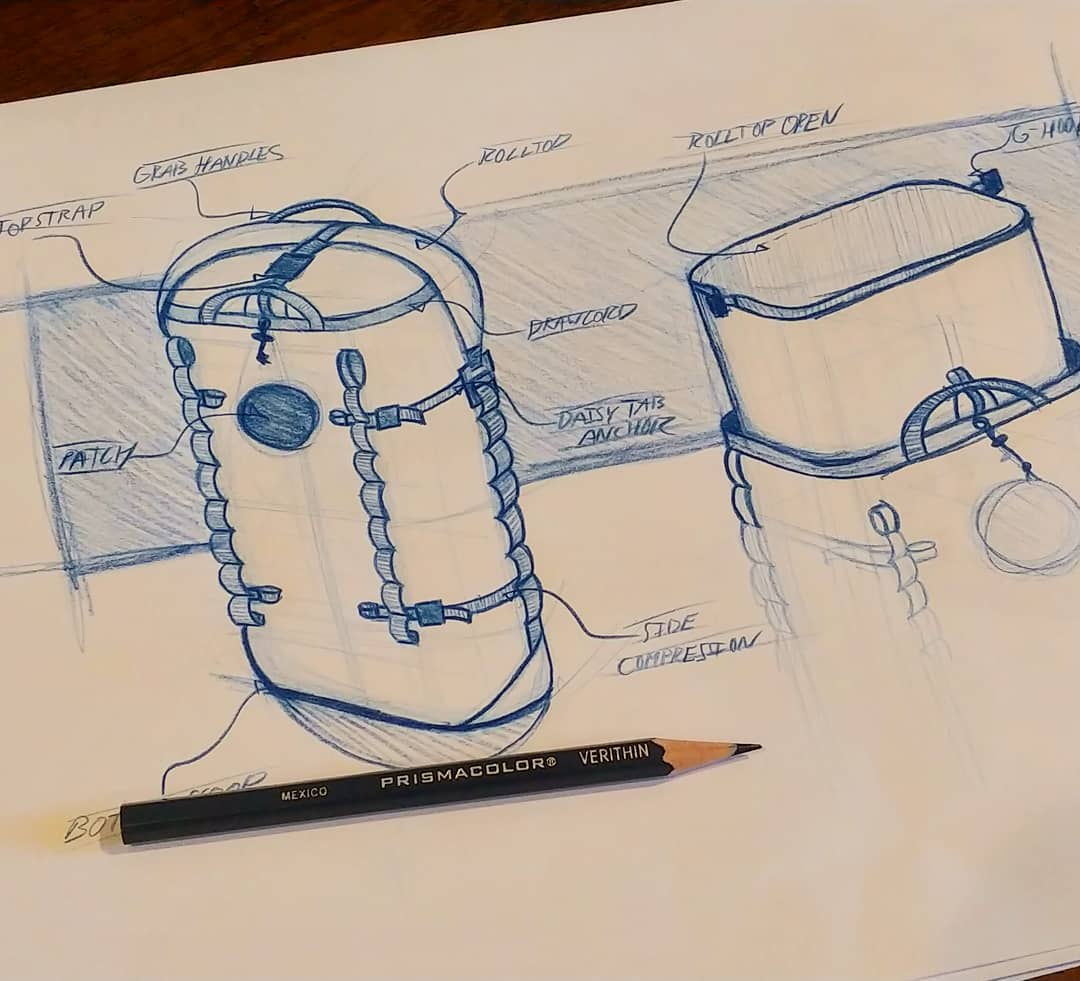 GRAB HANDLES
ROLLTOP
ROLLTOP OPEN
G-HOO
TOPSTRAP
DRAWCORD
DAISY TAB
ANCHOR
PATCH
SIDE
COMPRESION
BOT
PRISMACOLOR® VERITHIN
MEXICO